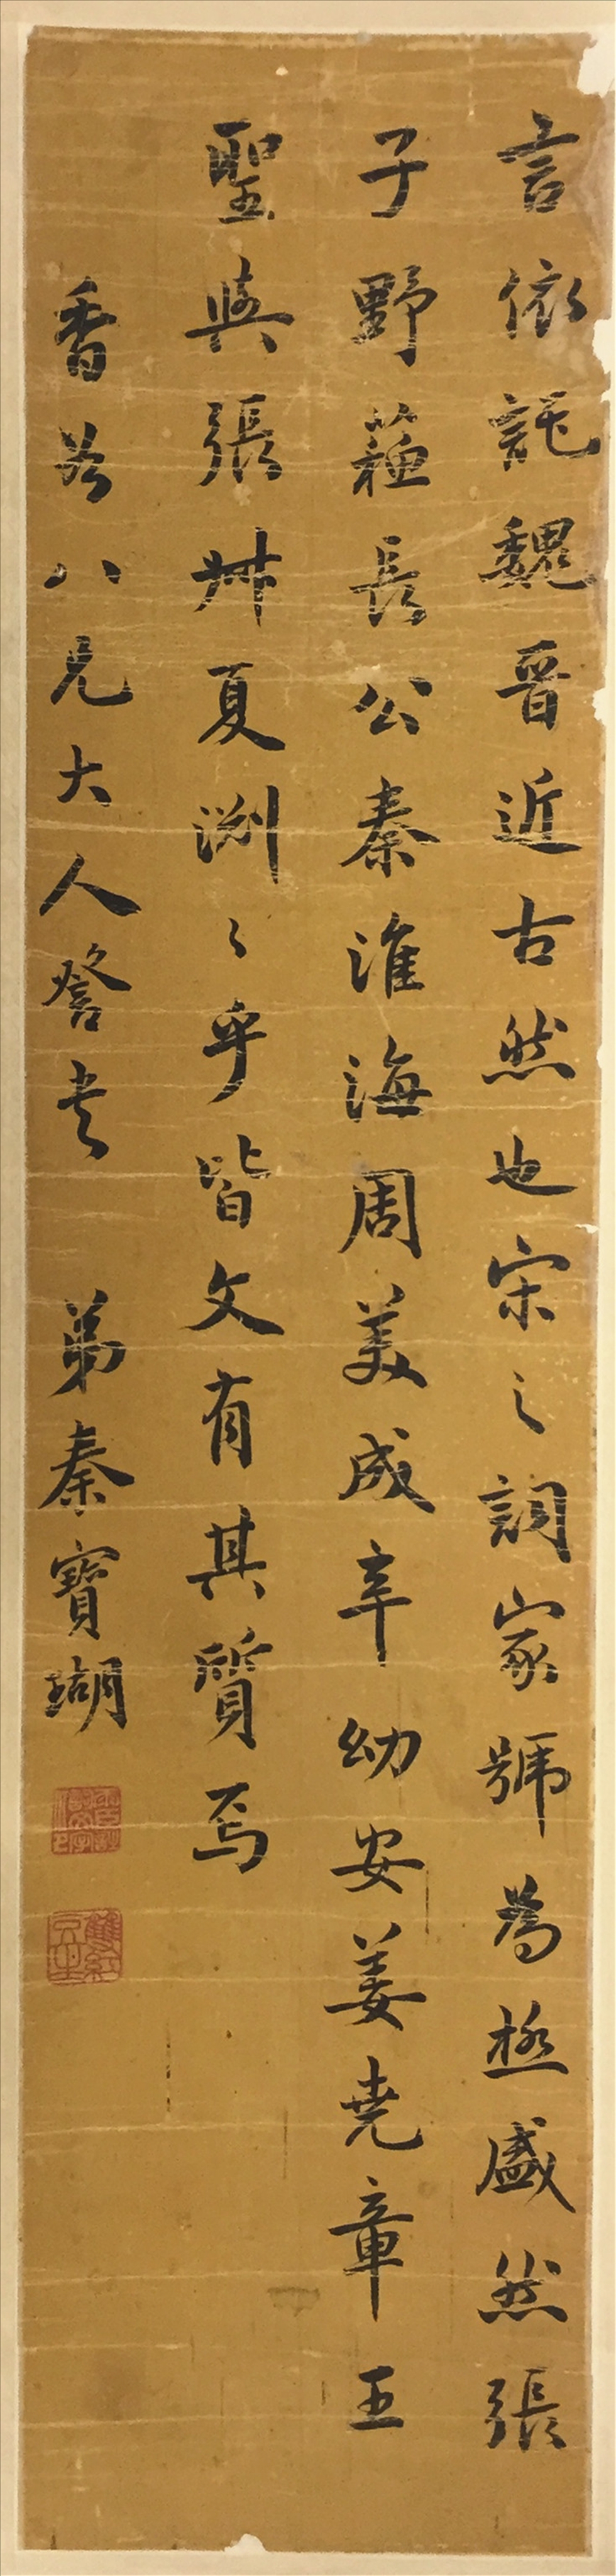 言依託魏晉近古然也宋之詞家號為極盛然張
子野蘇長公秦淮海周美成辛幼安姜堯章王
聖與張叔夏淵〻乎皆文有其質焉
香谷八兄大人詧書 弟秦寶瑚
雙紅